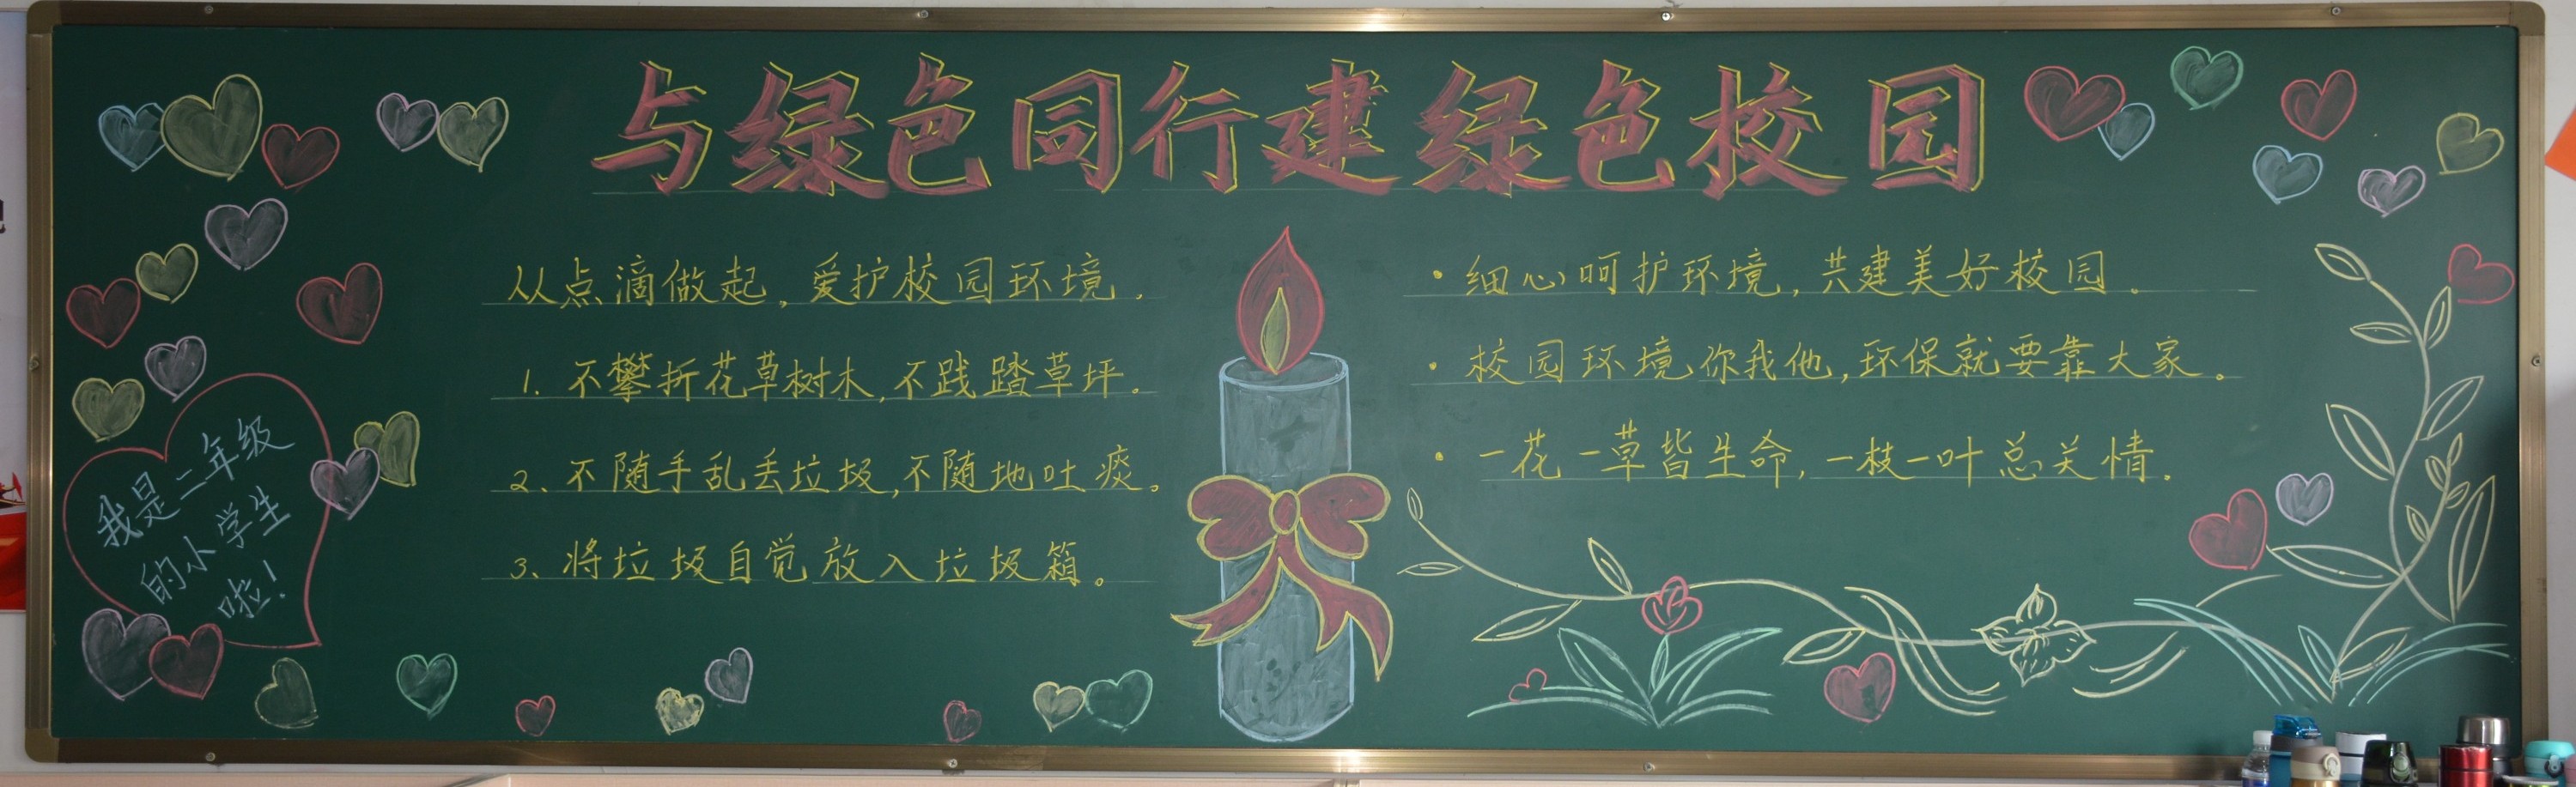 与绿色同行建绿色校园
从点滴做起,爱护校园环境.
1. 不攀折花草树木,不践踏草坪。
2、不随手乱丢垃圾,不随地吐痰。
3、将垃圾自觉放入垃圾箱。
·细心呵护环境,共建美好校园。
·校园环境你我他,环保就要靠大家。
·一花一草皆生命,一枝一叶总关情.
我是二年级
的小学生
啦!